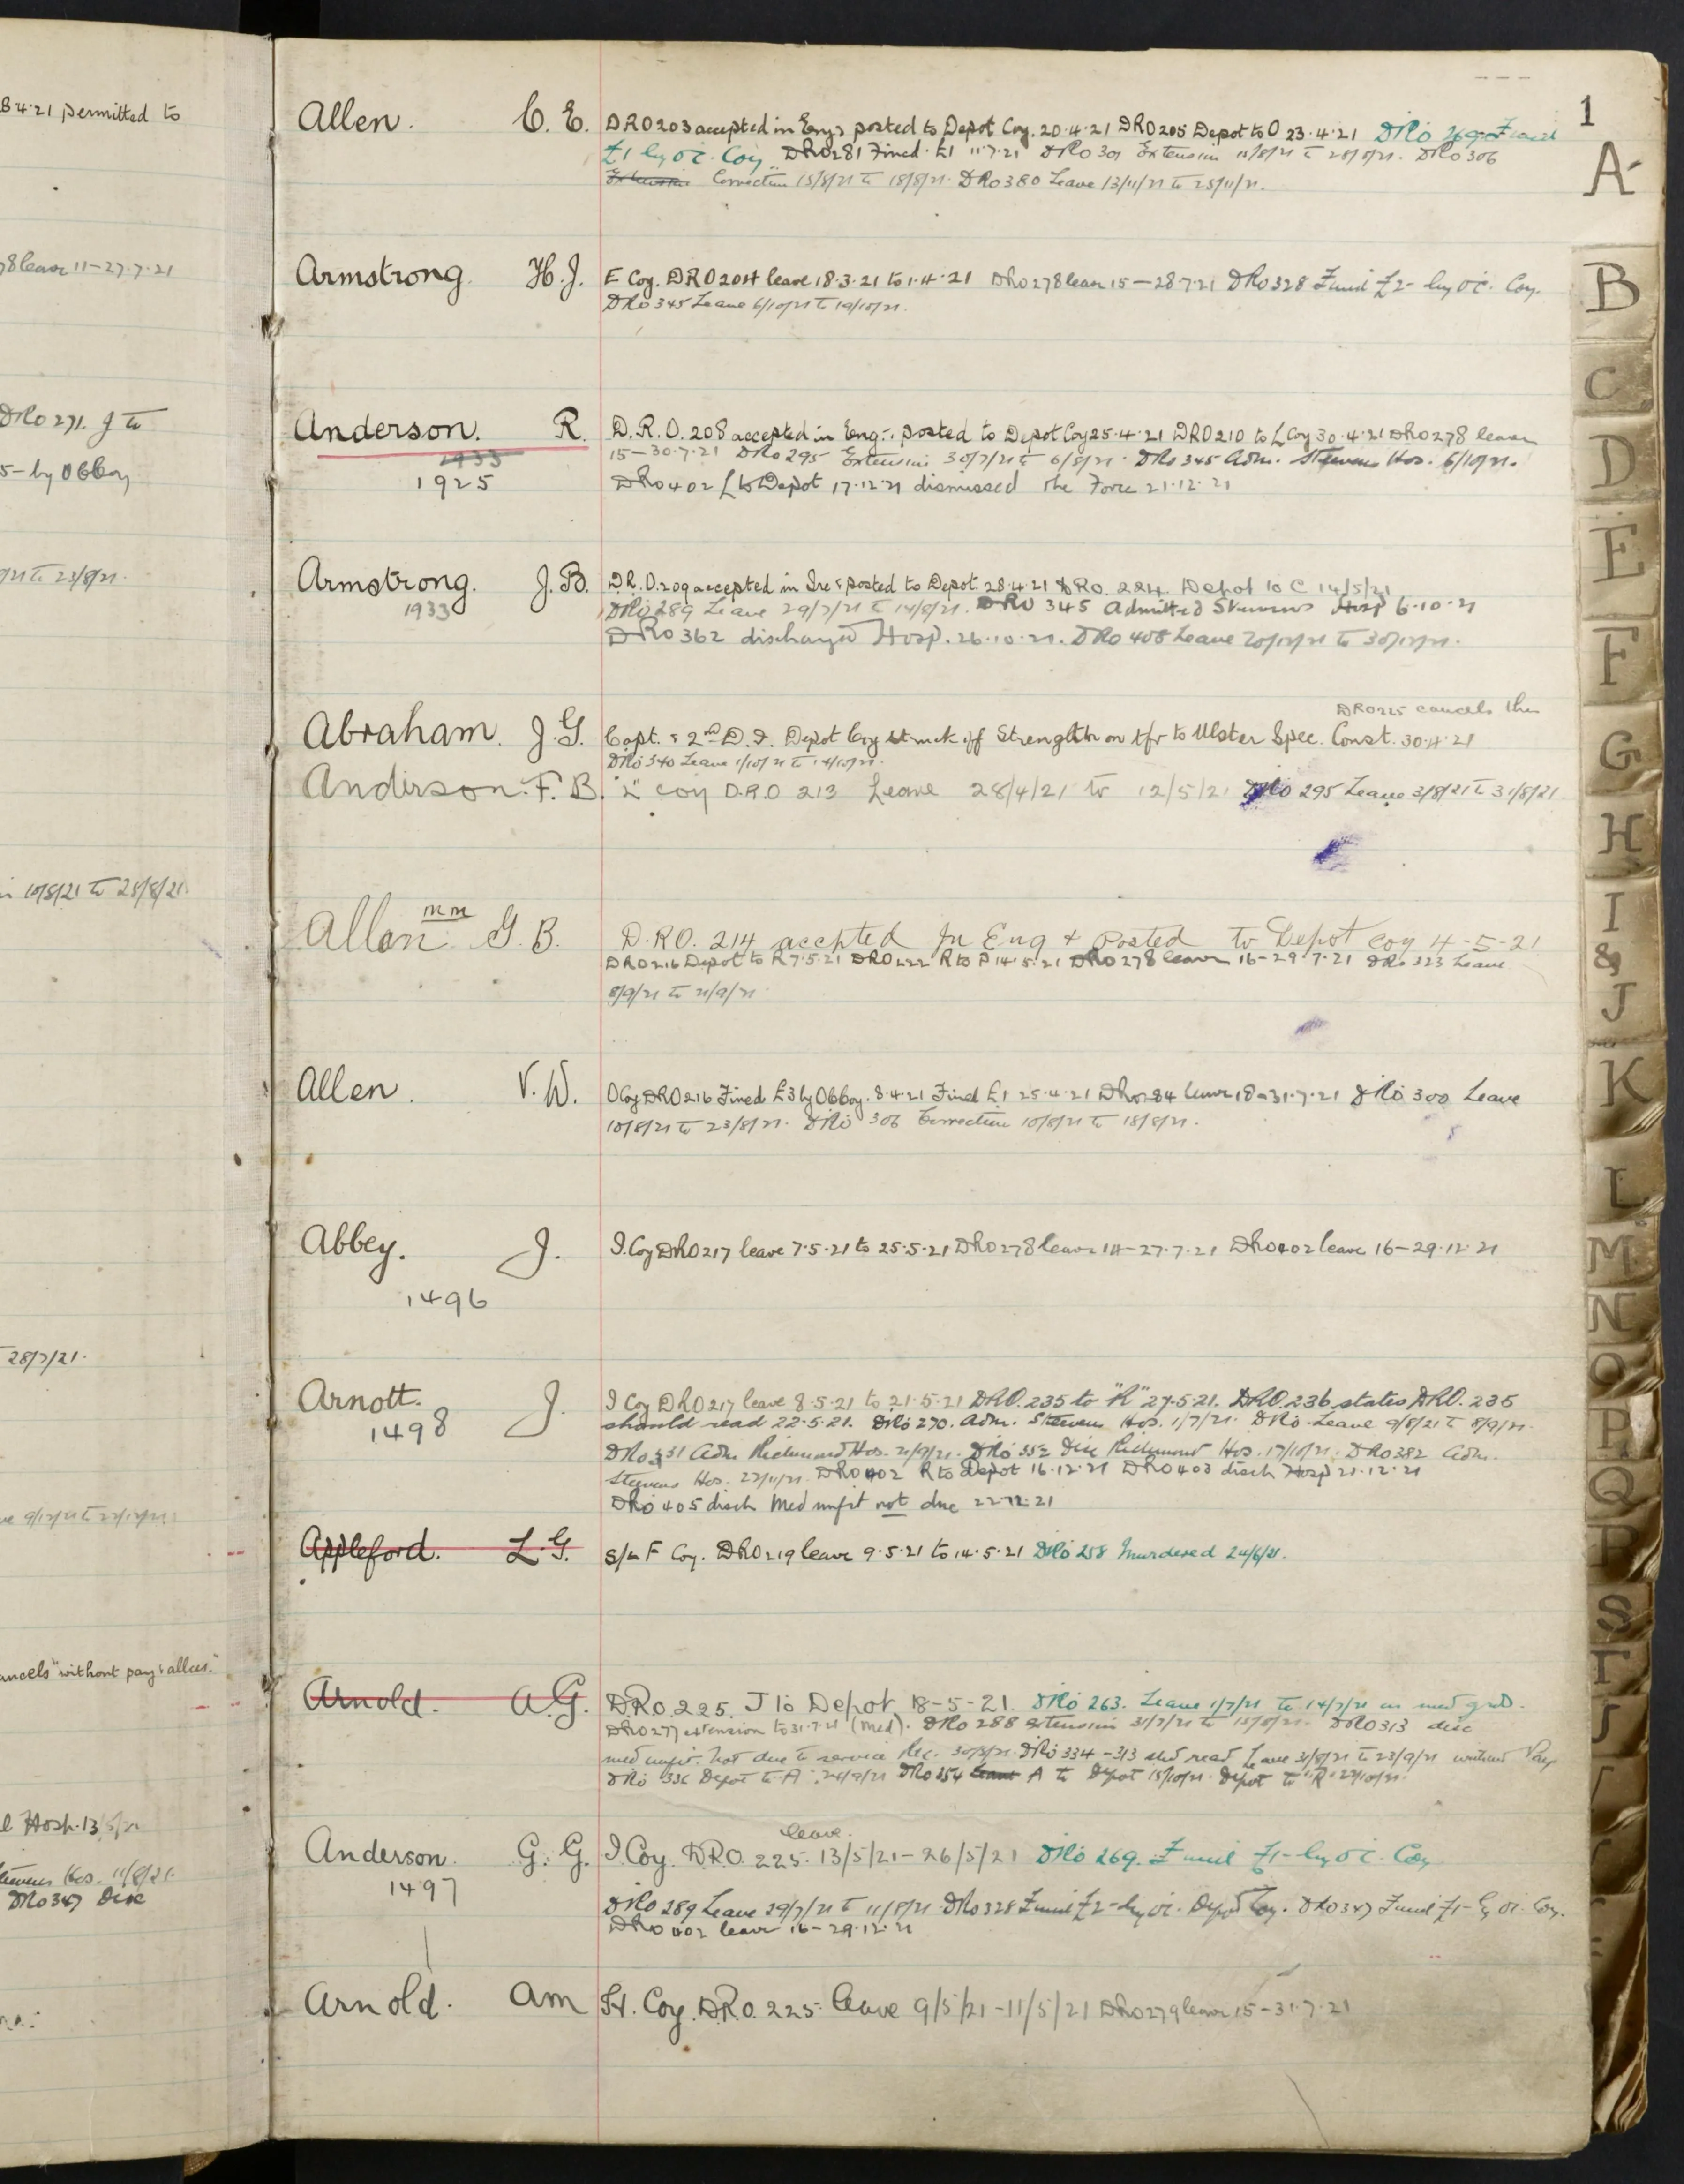 B 4·21 permitted to
78 leave 11–27·7·21
DRO 271. J to
5– by OC Coy
/21 to 23/8/21.
10/8/21 to 28/8/21.
28/7/21.
9/12/21 to 22/12/21.
ancels "without pay & allces."
l Hosp. 13/5/21
Stevens Hos. 11/8/21.
DRO 347 Disc
1
Allen. C. E. DRO 203 accepted in Eng & posted to Depot Coy. 20·4·21 DRO 205 Depot to O 23·4·21 DRO 269 Fined
£1 by O.C. Coy. DRO 281 Fined £1 11·7·21 DRO 301 Extension 15/8/21 to 28/8/21. DRO 306
Extension Correction 15/8/21 to 18/8/21. DRO 380 Leave 13/11/21 to 25/11/21.
Armstrong. H. J. E Coy. DRO 204 leave 18·3·21 to 1·4·21 DRO 278 leave 15–28·7·21 DRO 328 Fined £2– by O.C. Coy.
DRO 345 Leave 6/10/21 to 19/10/21.
Anderson. R. D.R.O. 208 accepted in Eng. & posted to Depot Coy 25·4·21 DRO 210 to L Coy 30·4·21 DRO 278 leave
1933 15–30·7·21 DRO 295 Extension 30/7/21 to 6/8/21. DRO 345 Adm. Steevens Hos. 6/10/21.
1925 DRO 402 L to Depot 17·12·21 dismissed the Force 21·12·21
Armstrong. J. B. D.R.O. 209 accepted in Ire & posted to Depot. 28·4·21 DRO. 224. Depot to C 14/5/21
1933 DRO 289 Leave 29/7/21 to 14/8/21. DRO 345 Admitted Stevens Hosp 6·10·21
DRO 362 discharged Hosp. 26·10·21. DRO 408 Leave 20/12/21 to 30/12/21.
DRO 225 cancels this
Abraham. J. G. Capt. & 2nd D.I. Depot Coy struck off Strength on tfr to Ulster Spec. Const. 30·4·21
DRO 340 Leave 1/10/21 to 14/10/21.
Anderson. F. B. "L" Coy D.R.O 213 Leave 28/4/21 to 12/5/21 DRO 295 Leave 3/8/21 to 31/8/21.
Allen MM G. B. D.R.O. 214 accepted In Eng & Posted to Depot Coy 4-5-21
DRO 216 Depot to R 7·5·21 DRO 222 R to P 14·5·21 DRO 278 leave 16–29·7·21 DRO 323 Leave
8/9/21 to 21/9/21
Allen. V. W. O Coy DRO 216 Fined £3 by OC Coy. 8·4·21 Fined £1 25·4·21 DRO 284 leave 18–31·7·21 DRO 300 Leave
10/8/21 to 23/8/21. DRO 306 Correction 10/8/21 to 18/8/21.
Abbey. J. I. Coy DRO 217 leave 7·5·21 to 25·5·21 DRO 278 leave 14–27·7·21 DRO 402 leave 16–29·12·21
1496
Arnott. J. I Coy DRO 217 leave 8·5·21 to 21·5·21 DRO. 235 to "R" 27·5·21. DRO. 236 states DRO. 235
1498 should read 22·5·21. DRO 270. Adm. Steevens Hos. 1/7/21. DRO Leave 9/8/21 to 8/9/21.
DRO 331 Adm Richmond Hos. 21/9/21. DRO 352 Disc Richmond Hos. 17/10/21. DRO 382 Adm.
Steevens Hos. 22/11/21. DRO 402 R to Depot 16·12·21 DRO 403 disch Hosp 21·12·21
DRO 405 disch Med unfit not due 22·12·21
Appleford. L. G. S/L F Coy. DRO 219 leave 9·5·21 to 14·5·21 DRO 258 Murdered 24/6/21.
Arnold. A. G. DRO. 225. J to Depot 18-5-21. DRO 263. Leave 1/7/21 to 14/7/21 on med grd.
DRO 277 extension to 31·7·21 (Med). DRO 288 extension 31/7/21 to 15/8/21. DRO 313 disc
med unfit. not due to service Rec. 30/8/21. DRO 334 –313 shd read Leave 31/8/21 to 23/9/21 without Pay
DRO 336 Depot to A. 24/9/21 DRO 354 Leave A to Depot 15/10/21. Depot to "R" 22/10/21.
leave.
Anderson. G. G. I Coy. DRO. 225. 13/5/21–26/5/21 DRO 269. Fined £1– by O.C. Coy
1497 DRO 289 Leave 29/7/21 to 11/8/21. DRO 328 Fined £2– by O.C. Depot Coy. DRO 347 Fined £1– by O.C. Coy.
DRO 402 leave 16–29·12·21
Arnold. A M H. Coy. DRO. 225. leave 9/5/21–11/5/21 DRO 279 leave 15–31·7·21
A
B
C
D
E
F
G
H
I
&
J
K
L
M
N
O
P
Q
R
S
T